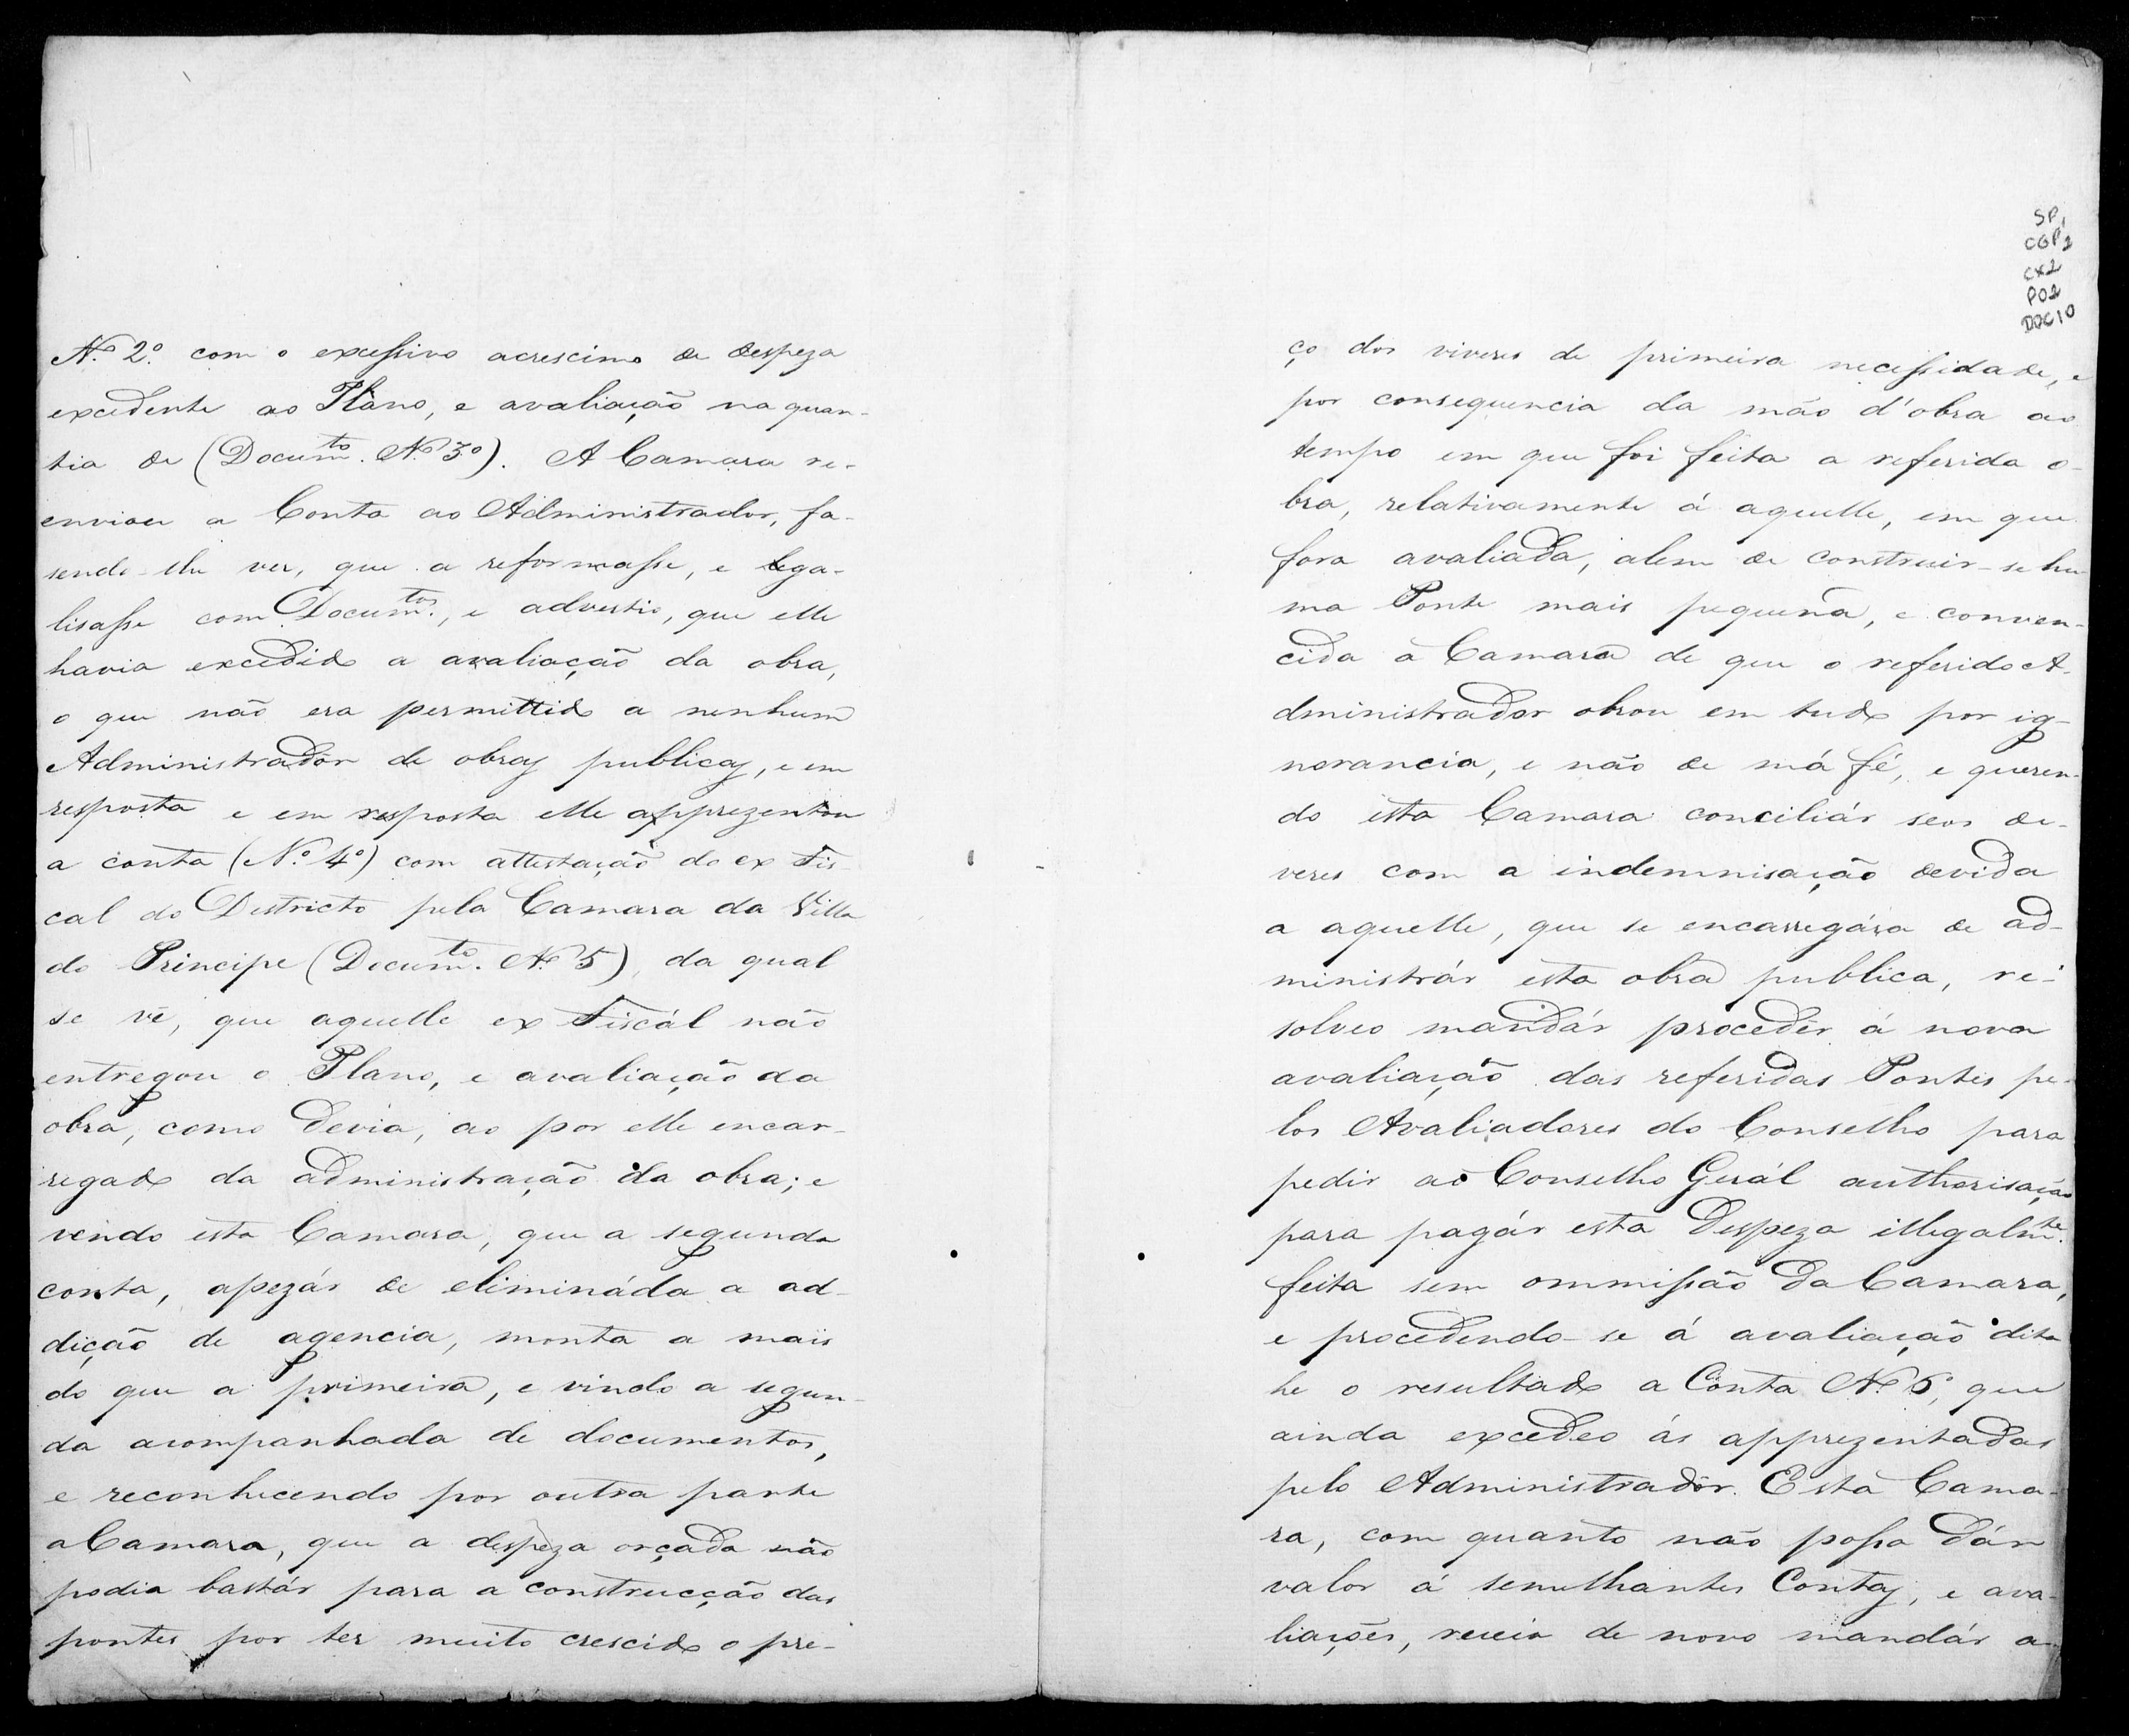 N.º 2º. com o excessivo acrescimo de despeza
excedente ao Plano, e avaliação na quan-
tia de (Docum.to N.º 3º). A Camara re-
enviou a Conta ao Administrador, fa-
sendo-lhe ver, que a reformasse, e lega-
lisasse com Docum.tos, e advertio, que elle
havia excedido a avaliação da obra,
o que não era permittido a nenhum
Administradôr de obras publicas, e em
resposta e em resposta elle apprezentou
a conta (N.º 4º) com attestação do ex Fis-
cal do Districto pela Camara da Villa
do Principe (Docum.to N.º 5), da qual
se vê, que aquelle ex Fiscál não
entregou o Plano, e avaliação da
obra, como devia, ao por elle encar-
regado da administração da obra; e
vendo esta Camara, que a segunda
conta, apezár de elimináda a ad-
dição de agencia, monta a mais
do que a primeira, e vindo a segun-
da acompanhada de documentos,
e reconhecendo por outra parte
a Camara, que a despeza orçada não
podia bastár para a construcção das
pontes por ter muito crescido o pre-
SP1
CGP2
CX2
P02
DOC10
ço dos viveres de primeira necessidade, e
por consequencia da mão d'obra ao
tempo em que foi feita a referida o-
bra, relativamente á aquelle, em que
fora avaliada, alem de construir-se hu-
ma Ponte mais pequena, e conven-
cida a Camara de que o referido A-
dministrador obrou em tudo por ig-
norancia, e não de má fé, e queren-
do esta Camara conciliár seos de-
veres com a indemnisação devida
a aquelle, que se encarregára de ad-
ministrár esta obra publica, re-
solveo mandár proceder á nova
avaliação das referidas Pontes pe-
los Avaliadores do Conselho para
pedir ao Conselho Gerál authorisação
para pagár esta Despeza illegalm.te
feita sem ommissão da Camara,
e procedendo-se á avaliação dita
he o resultado a Conta N.º 6, que
ainda excedeo ás apprezentadas
pelo Administradôr. Esta Cama-
ra, com quanto não possa dár
valor á semelhantes Contas, e ava-
liações, receia de novo mandár a-